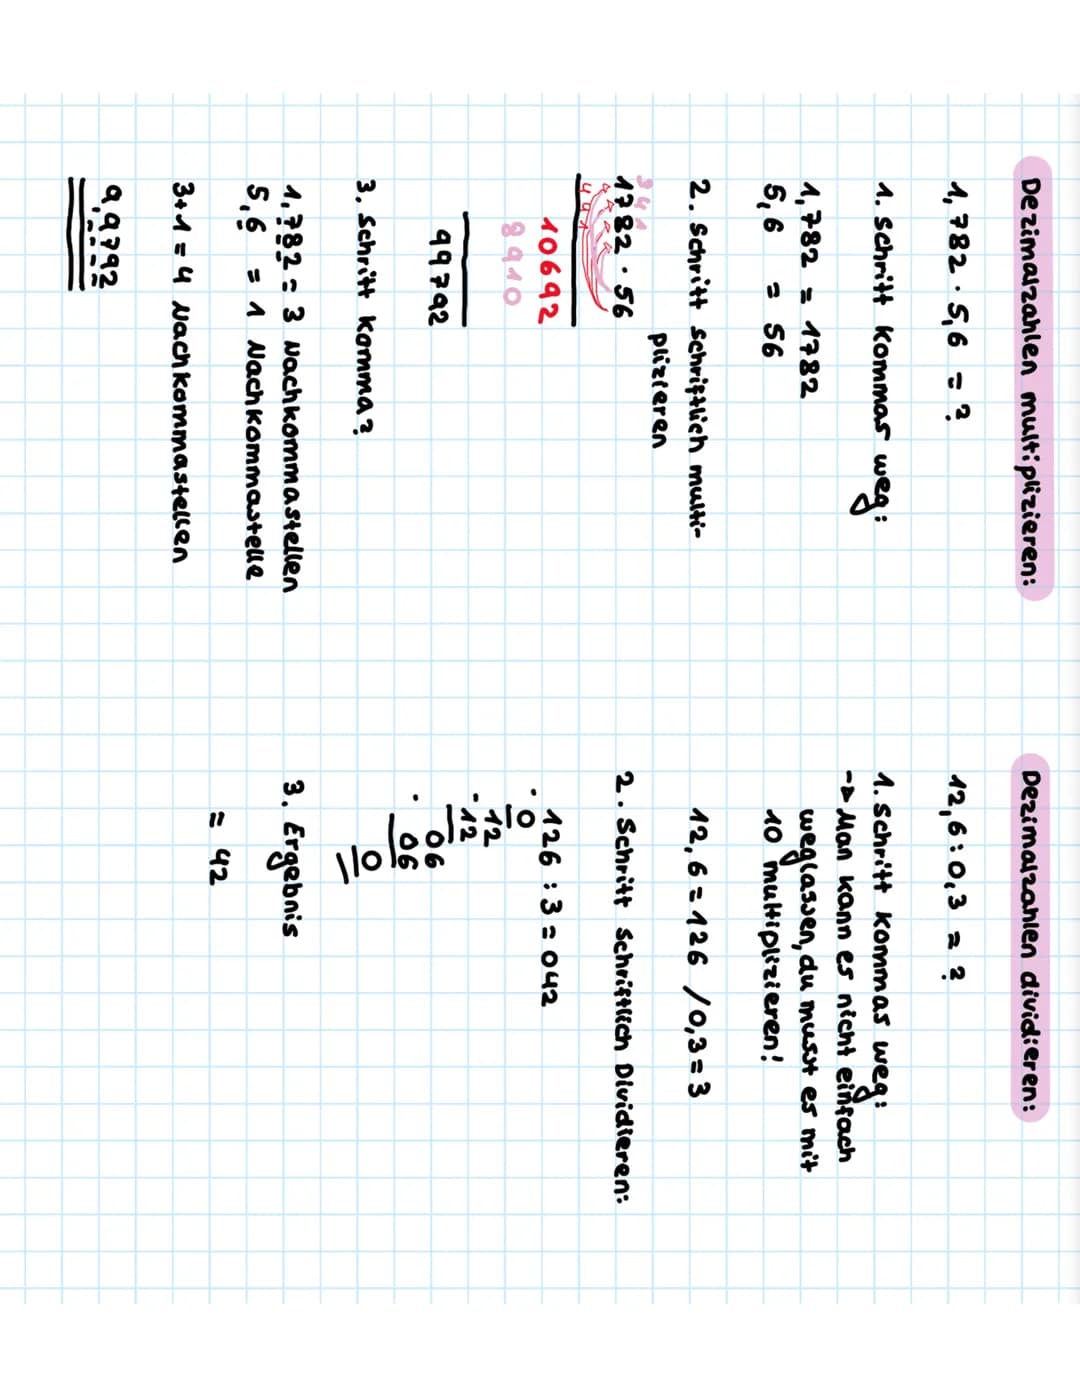 Dezimalzahlen multiplizieren:
1,782 · 5,6 = ?
1. Schritt Kommas weg:
1,782 = 1782
5,6 = 56
2. Schritt Schriftlich multi-
plizieren
3 4 1
1782 · 56
4 4 1
10692
8910
99792
3. Schritt Komma?
1,782 = 3 Nachkommastellen
5,6 = 1 Nachkommastelle
3+1 = 4 Nachkommastellen
9,9792
Dezimalzahlen dividieren:
12,6 : 0,3 = ?
1. Schritt Kommas weg:
-> Man kann es nicht einfach
weglassen, du musst es mit
10 multiplizieren!
12,6 = 126 / 0,3 = 3
2. Schritt Schriftlich Dividieren:
126 : 3 = 042
- 0
12
- 12
06
- 06
0
3. Ergebnis
= 42